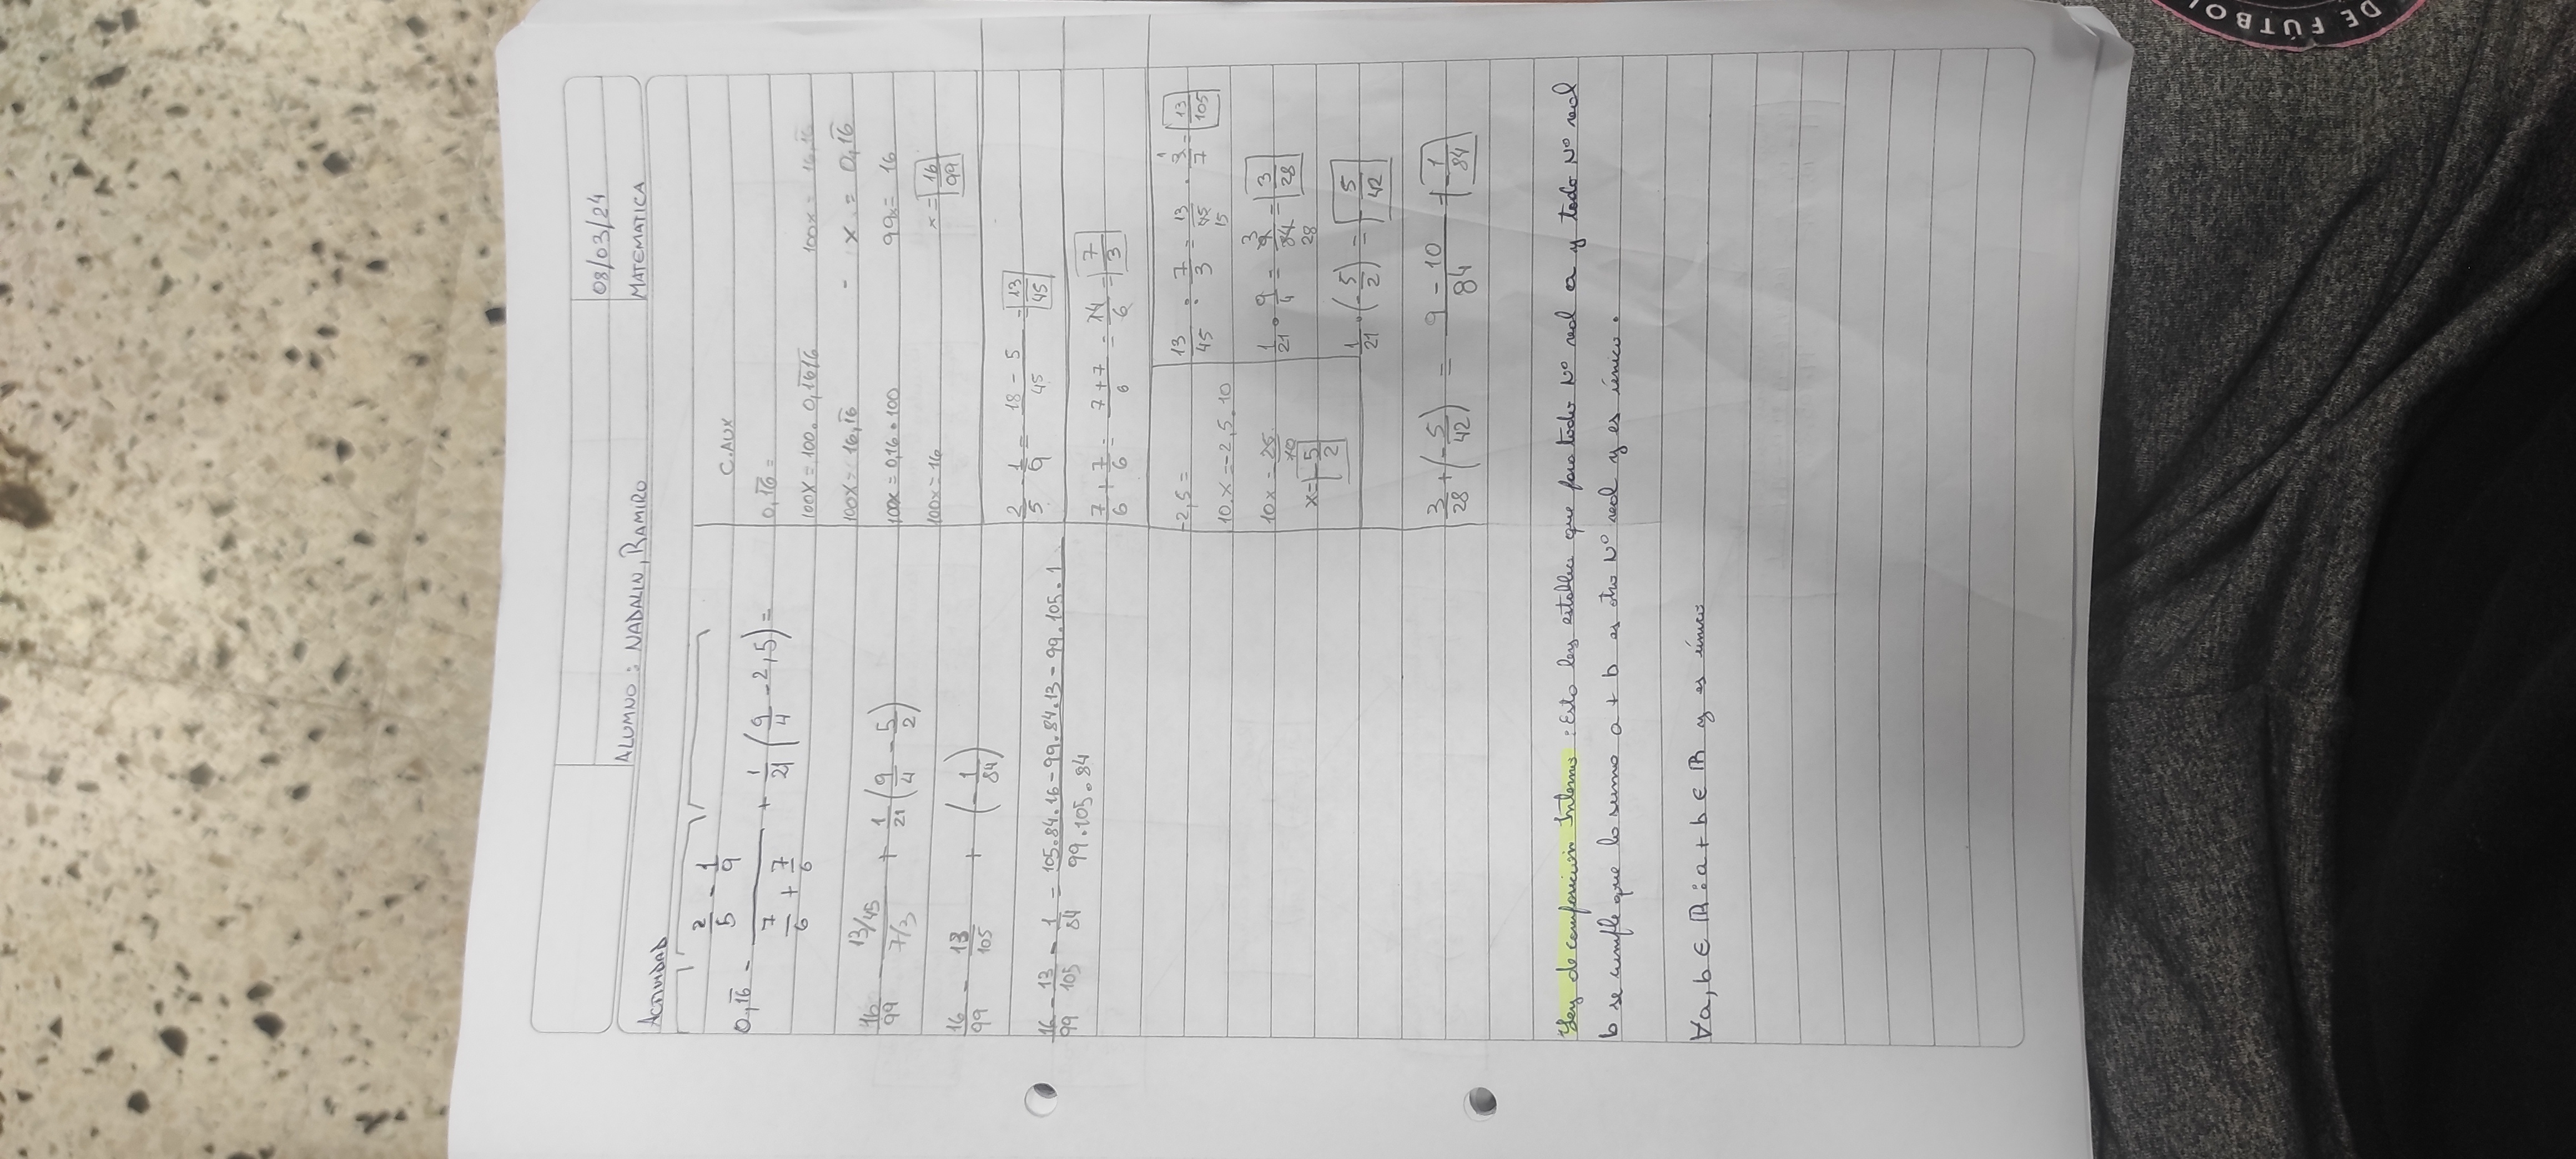 08/03/24
ALUMNO: NADALIN, RAMIRO
MATEMATICA
ACTIVIDAD
0,1̅6̅ - (2/5 - 1/9)/(7/6 + 7/6) + 1/21 (9/4 - 2,5) =
16/99 - (13/45)/(7/3) + 1/21 (9/4 - 5/2)
16/99 - 13/105 + (-1/84)
16/99 - 13/105 - 1/84 = (105.84.16 - 99.84.13 - 99.105.1)/(99.105.84)
C.AUX
0,1̅6̅ =
100X = 100. 0,1̅6̅1̅6̅
100X = 16,1̅6̅
100X = 0,16.100
100X = 16
100X = 16,1̅6̅
- X = 0,1̅6̅
99X = 16
X = 16/99
2/5 - 1/9 = (18 - 5)/45 = 13/45
7/6 + 7/6 = (7+7)/6 = 14/6 = 7/3
-2,5 =
10.X = -2,5.10
10X = -25/10
X = -5/2
13/45 : 7/3 = 13/45 15 . 1 3/7 = 13/105
1/21 . 9/4 = 3 9/84 28 = 3/28
1/21 . (-5/2) = -5/42
3/28 + (-5/42) = (9 - 10)/84 = -1/84
Ley de composición Interna: Esta ley establece que para todo Nº real a y todo Nº real
b se cumple que la suma a + b es otro Nº real y es único.
∀a, b ∈ ℝ : a + b ∈ ℝ y es único
DE FÚTBOL